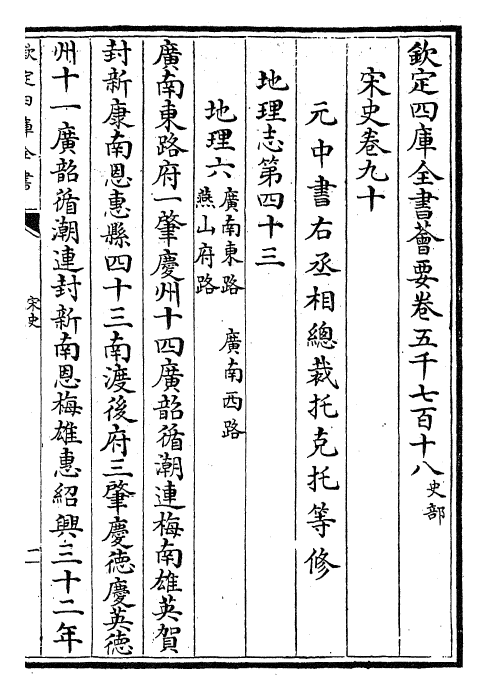 欽定四庫全書薈要卷五千七百十八史部
宋史卷九十
元中書右丞相總裁托克托等修
地理志第四十三
地理六廣南東路 廣南西路
燕山府路
廣南東路府一肇慶州十四廣韶循潮連梅南雄英賀
封新康南恩惠縣四十三南渡後府三肇慶徳慶英徳
州十一廣韶循潮連封新南恩梅雄惠紹興三十二年
欽定四庫全書
宋史
一